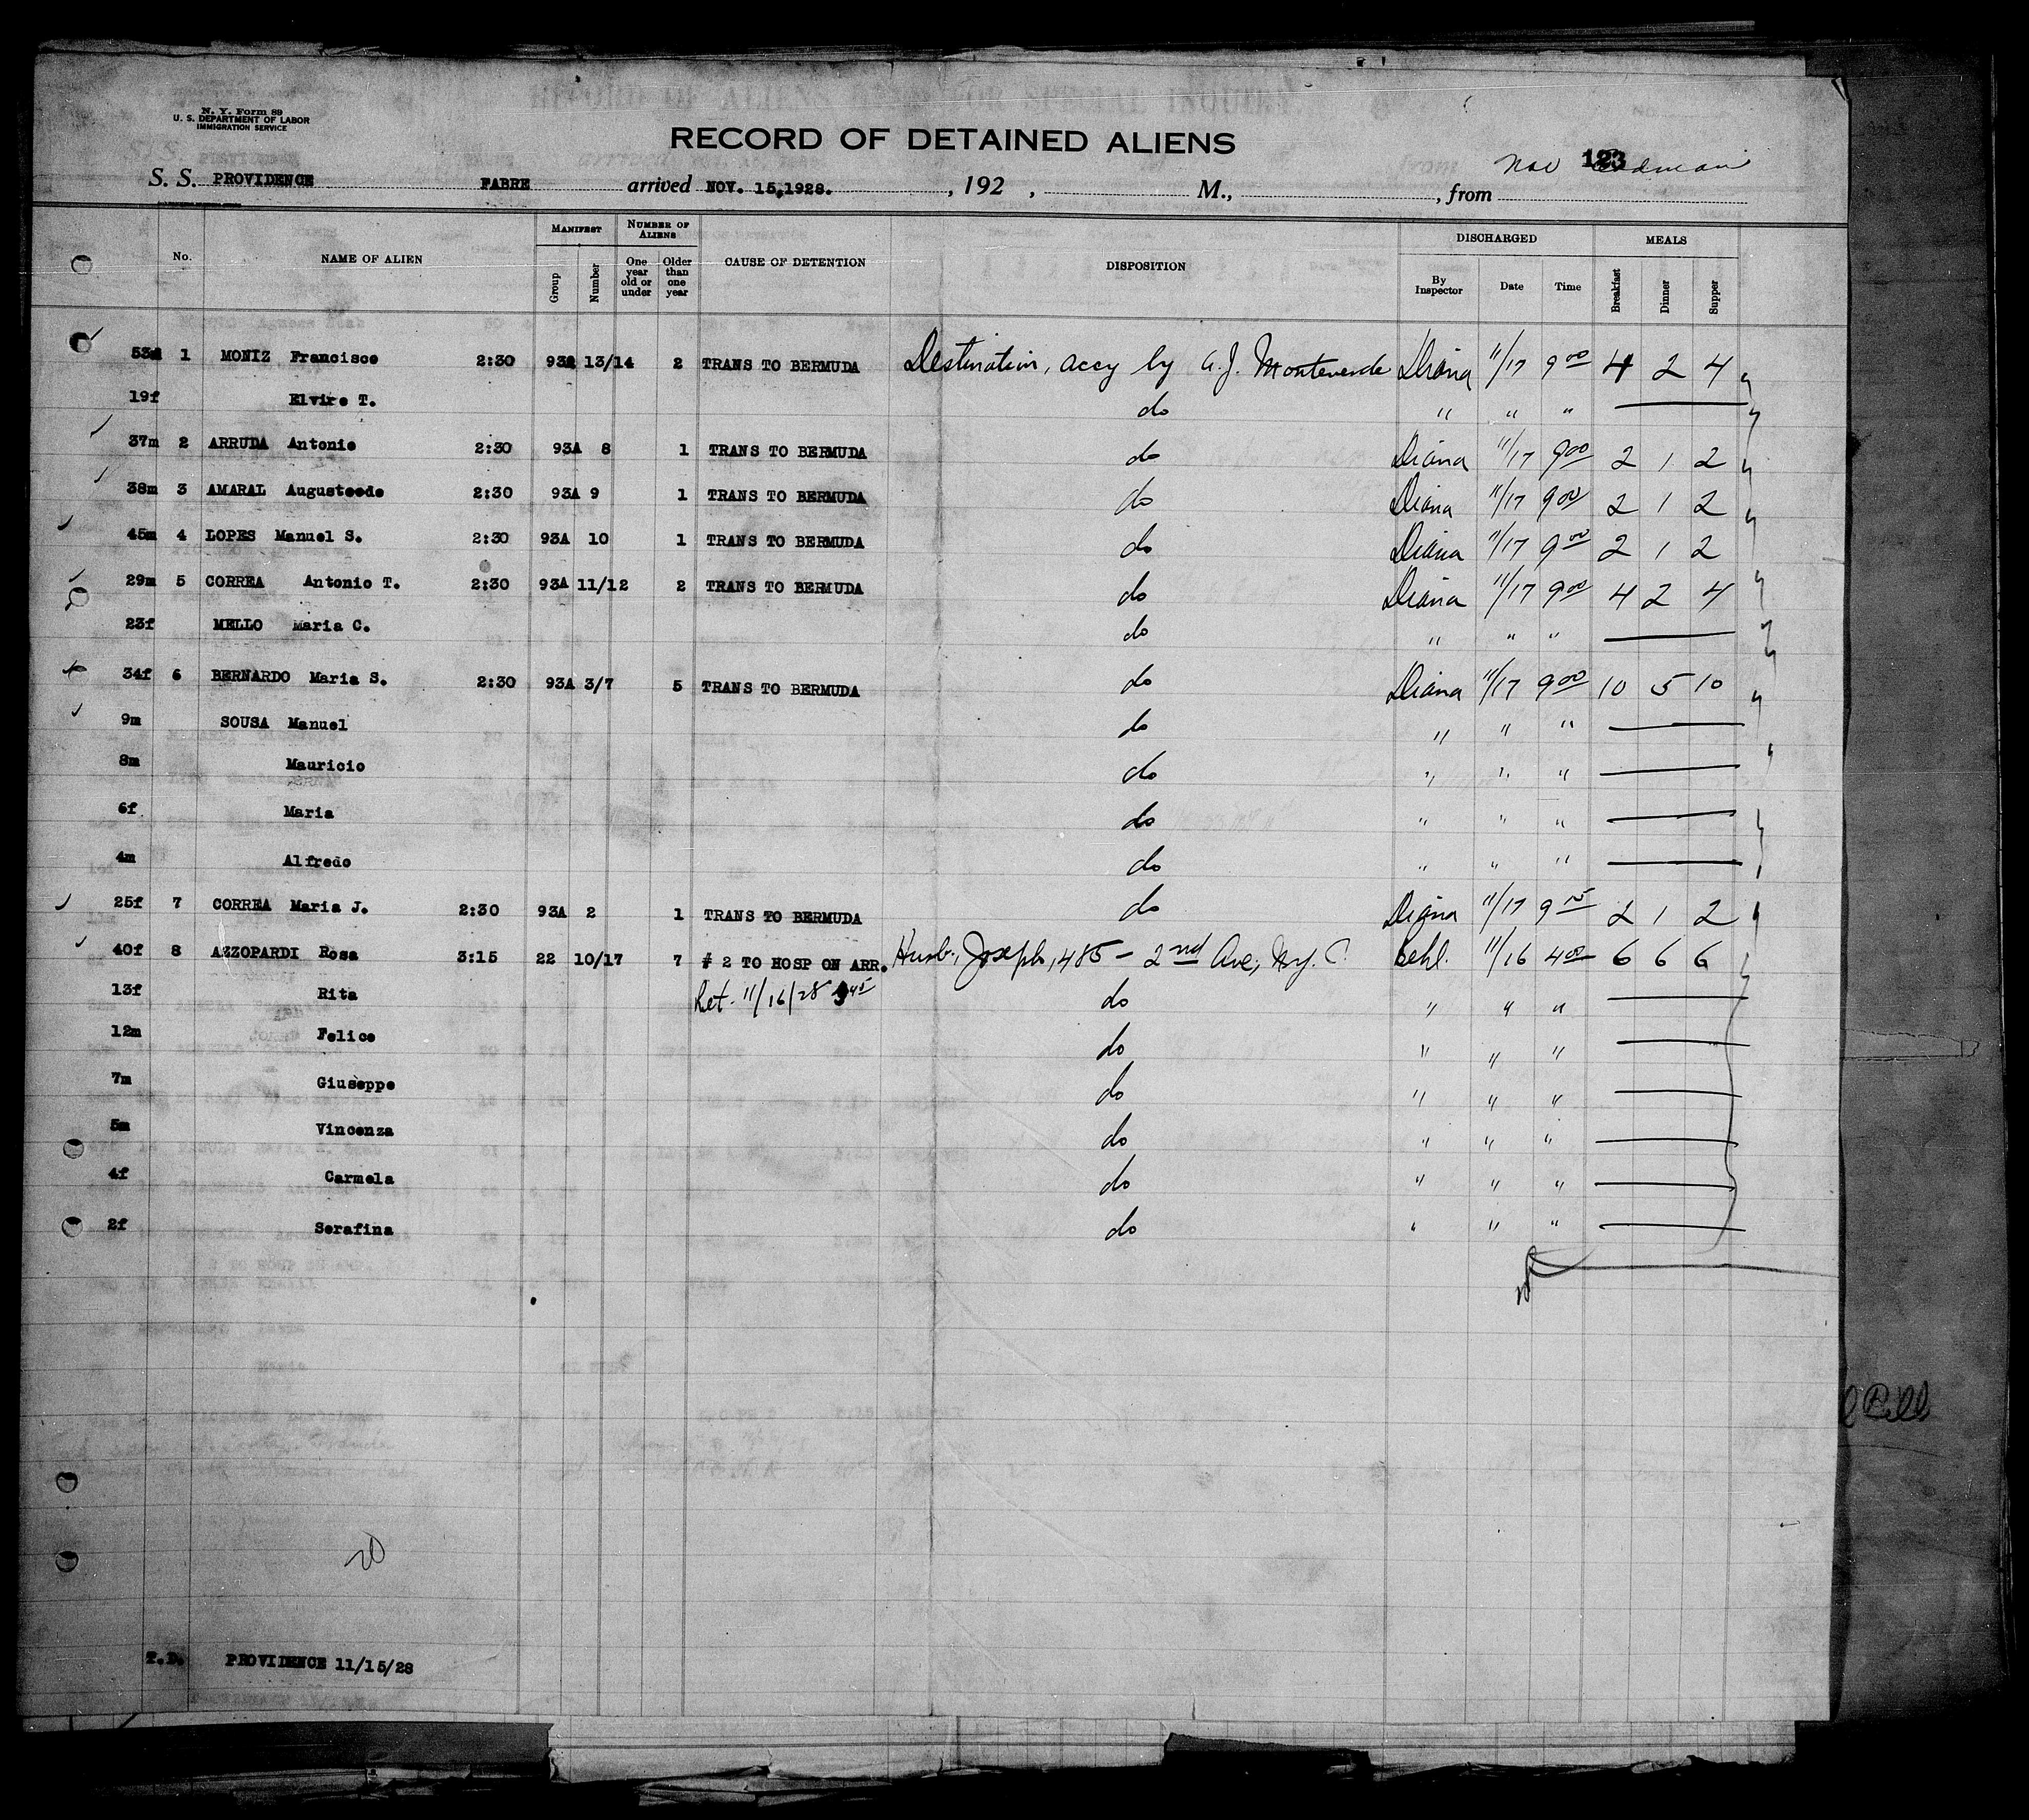 N. Y. Form 89
U. S. DEPARTMENT OF LABOR
IMMIGRATION SERVICE
RECORD OF DETAINED ALIENS
123
S. S. PROVIDENCE FABRE arrived NOV. 15,1928. , 192 , M., , from
No. NAME OF ALIEN MANIFEST Group Number NUMBER OF ALIENS One year old or under Older than one year CAUSE OF DETENTION DISPOSITION DISCHARGED By Inspector Date Time MEALS Breakfast Dinner Supper
53m 1 MONIZ Francisco 2:30 93A 13/14 2 TRANS TO BERMUDA Destination, accy by A.J. Monteverde Diana 11/17 9 00 4 2 4
19f Elvira T. do " " "
37m 2 ARRUDA Antonio 2:30 93A 8 1 TRANS TO BERMUDA do Diana 11/17 9 00 2 1 2
38m 3 AMARAL Augustoode 2:30 93A 9 1 TRANS TO BERMUDA do Diana 11/17 9 00 2 1 2
45m 4 LOPES Manuel S. 2:30 93A 10 1 TRANS TO BERMUDA do Diana 11/17 9 00 2 1 2
29m 5 CORREA Antonio T. 2:30 93A 11/12 2 TRANS TO BERMUDA do Diana 11/17 9 00 4 2 4
23f MELLO Maria C. do " " "
34f 6 BERNARDO Maria S. 2:30 93A 3/7 5 TRANS TO BERMUDA do Diana 11/17 9 00 10 5 10
9m SOUSA Manuel do " " "
8m Mauricio do " " "
6f Maria do " " "
4m Alfredo do " " "
25f 7 CORREA Maria J. 2:30 93A 2 1 TRANS TO BERMUDA do Diana 11/17 9 15 2 1 2
40f 8 AZZOPARDI Rosa 3:15 22 10/17 7 # 2 TO HOSP ON ARR. Husb, Joseph, 485 - 2nd Ave, N.Y.C. 11/16 4 00 6 6 6
13f Rita Ret. 11/16/28 3 45 do " " "
12m Felice do " " "
7m Giuseppe do " " "
5m Vincenza do " " "
4f Carmela do " " "
2f Serafina do " " "
20
T.D. PROVIDENCE 11/15/28